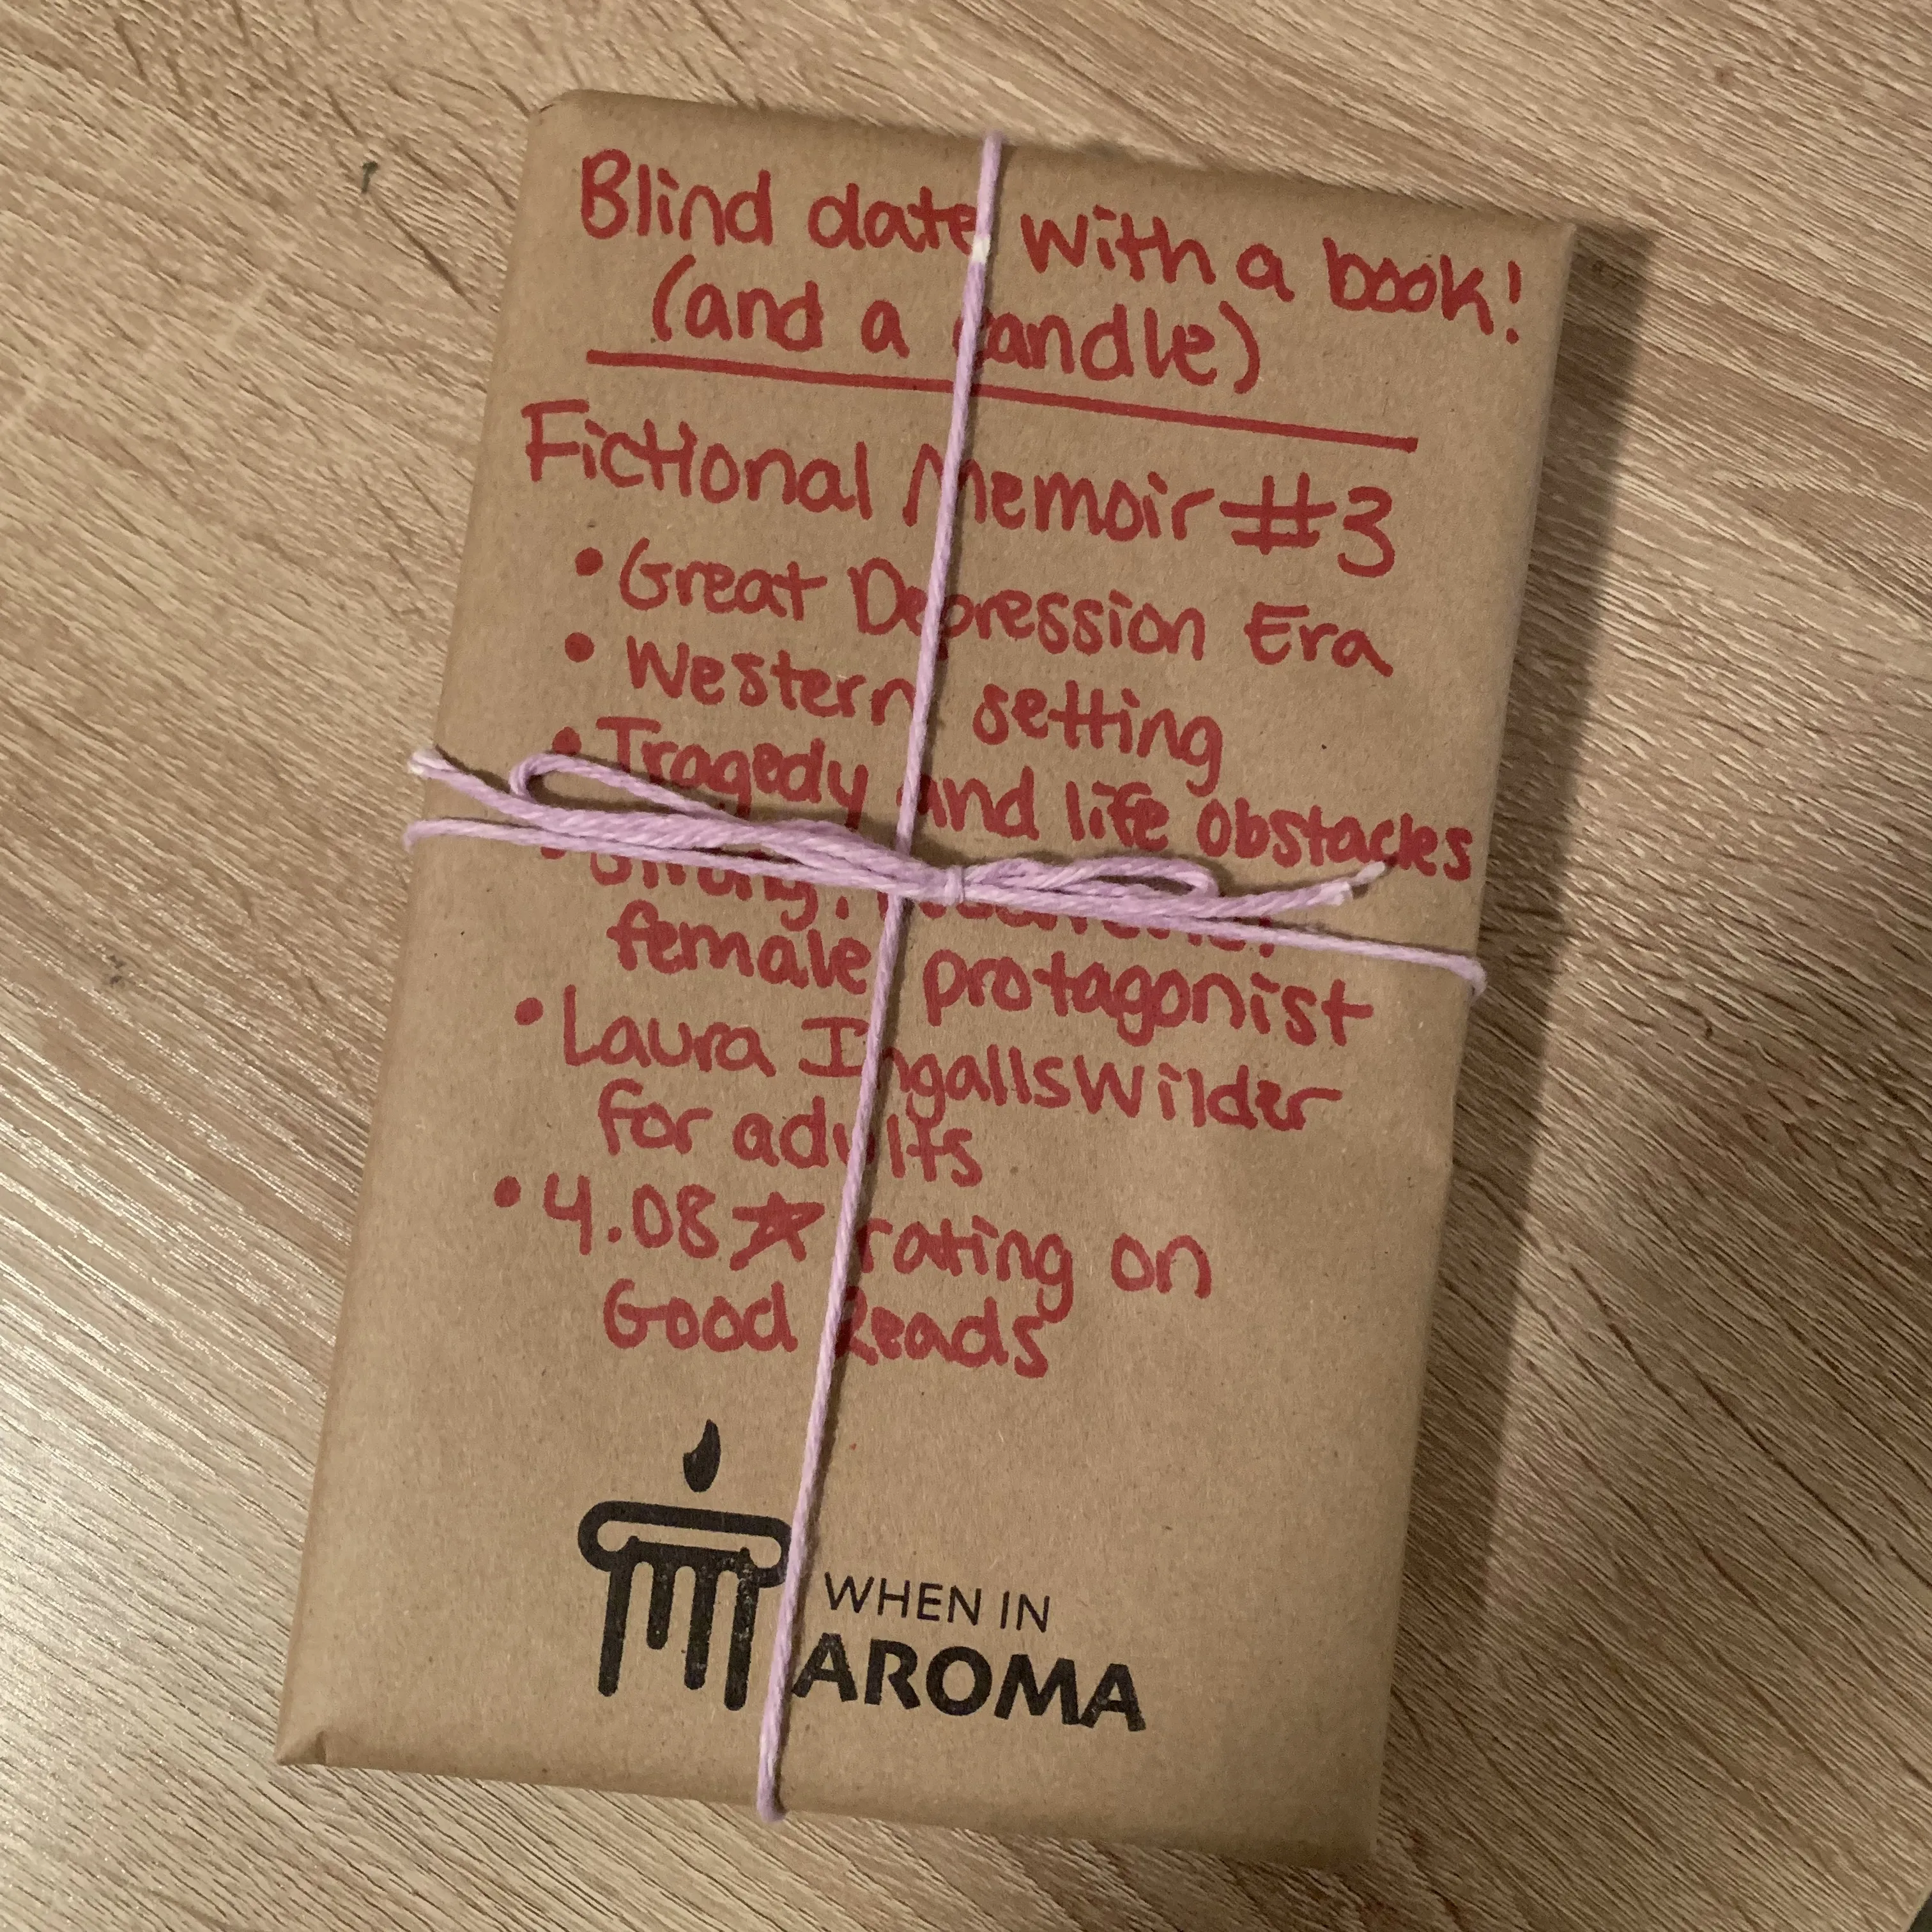 Blind date with a book!
(and a candle)
Fictional Memoir #3
• Great Depression Era
• Western setting
• Tragedy and life obstacles
• Strong,
female protagonist
• Laura Ingalls Wilder
for adults
• 4.08 ☆ rating on
Good Reads
WHEN IN
AROMA